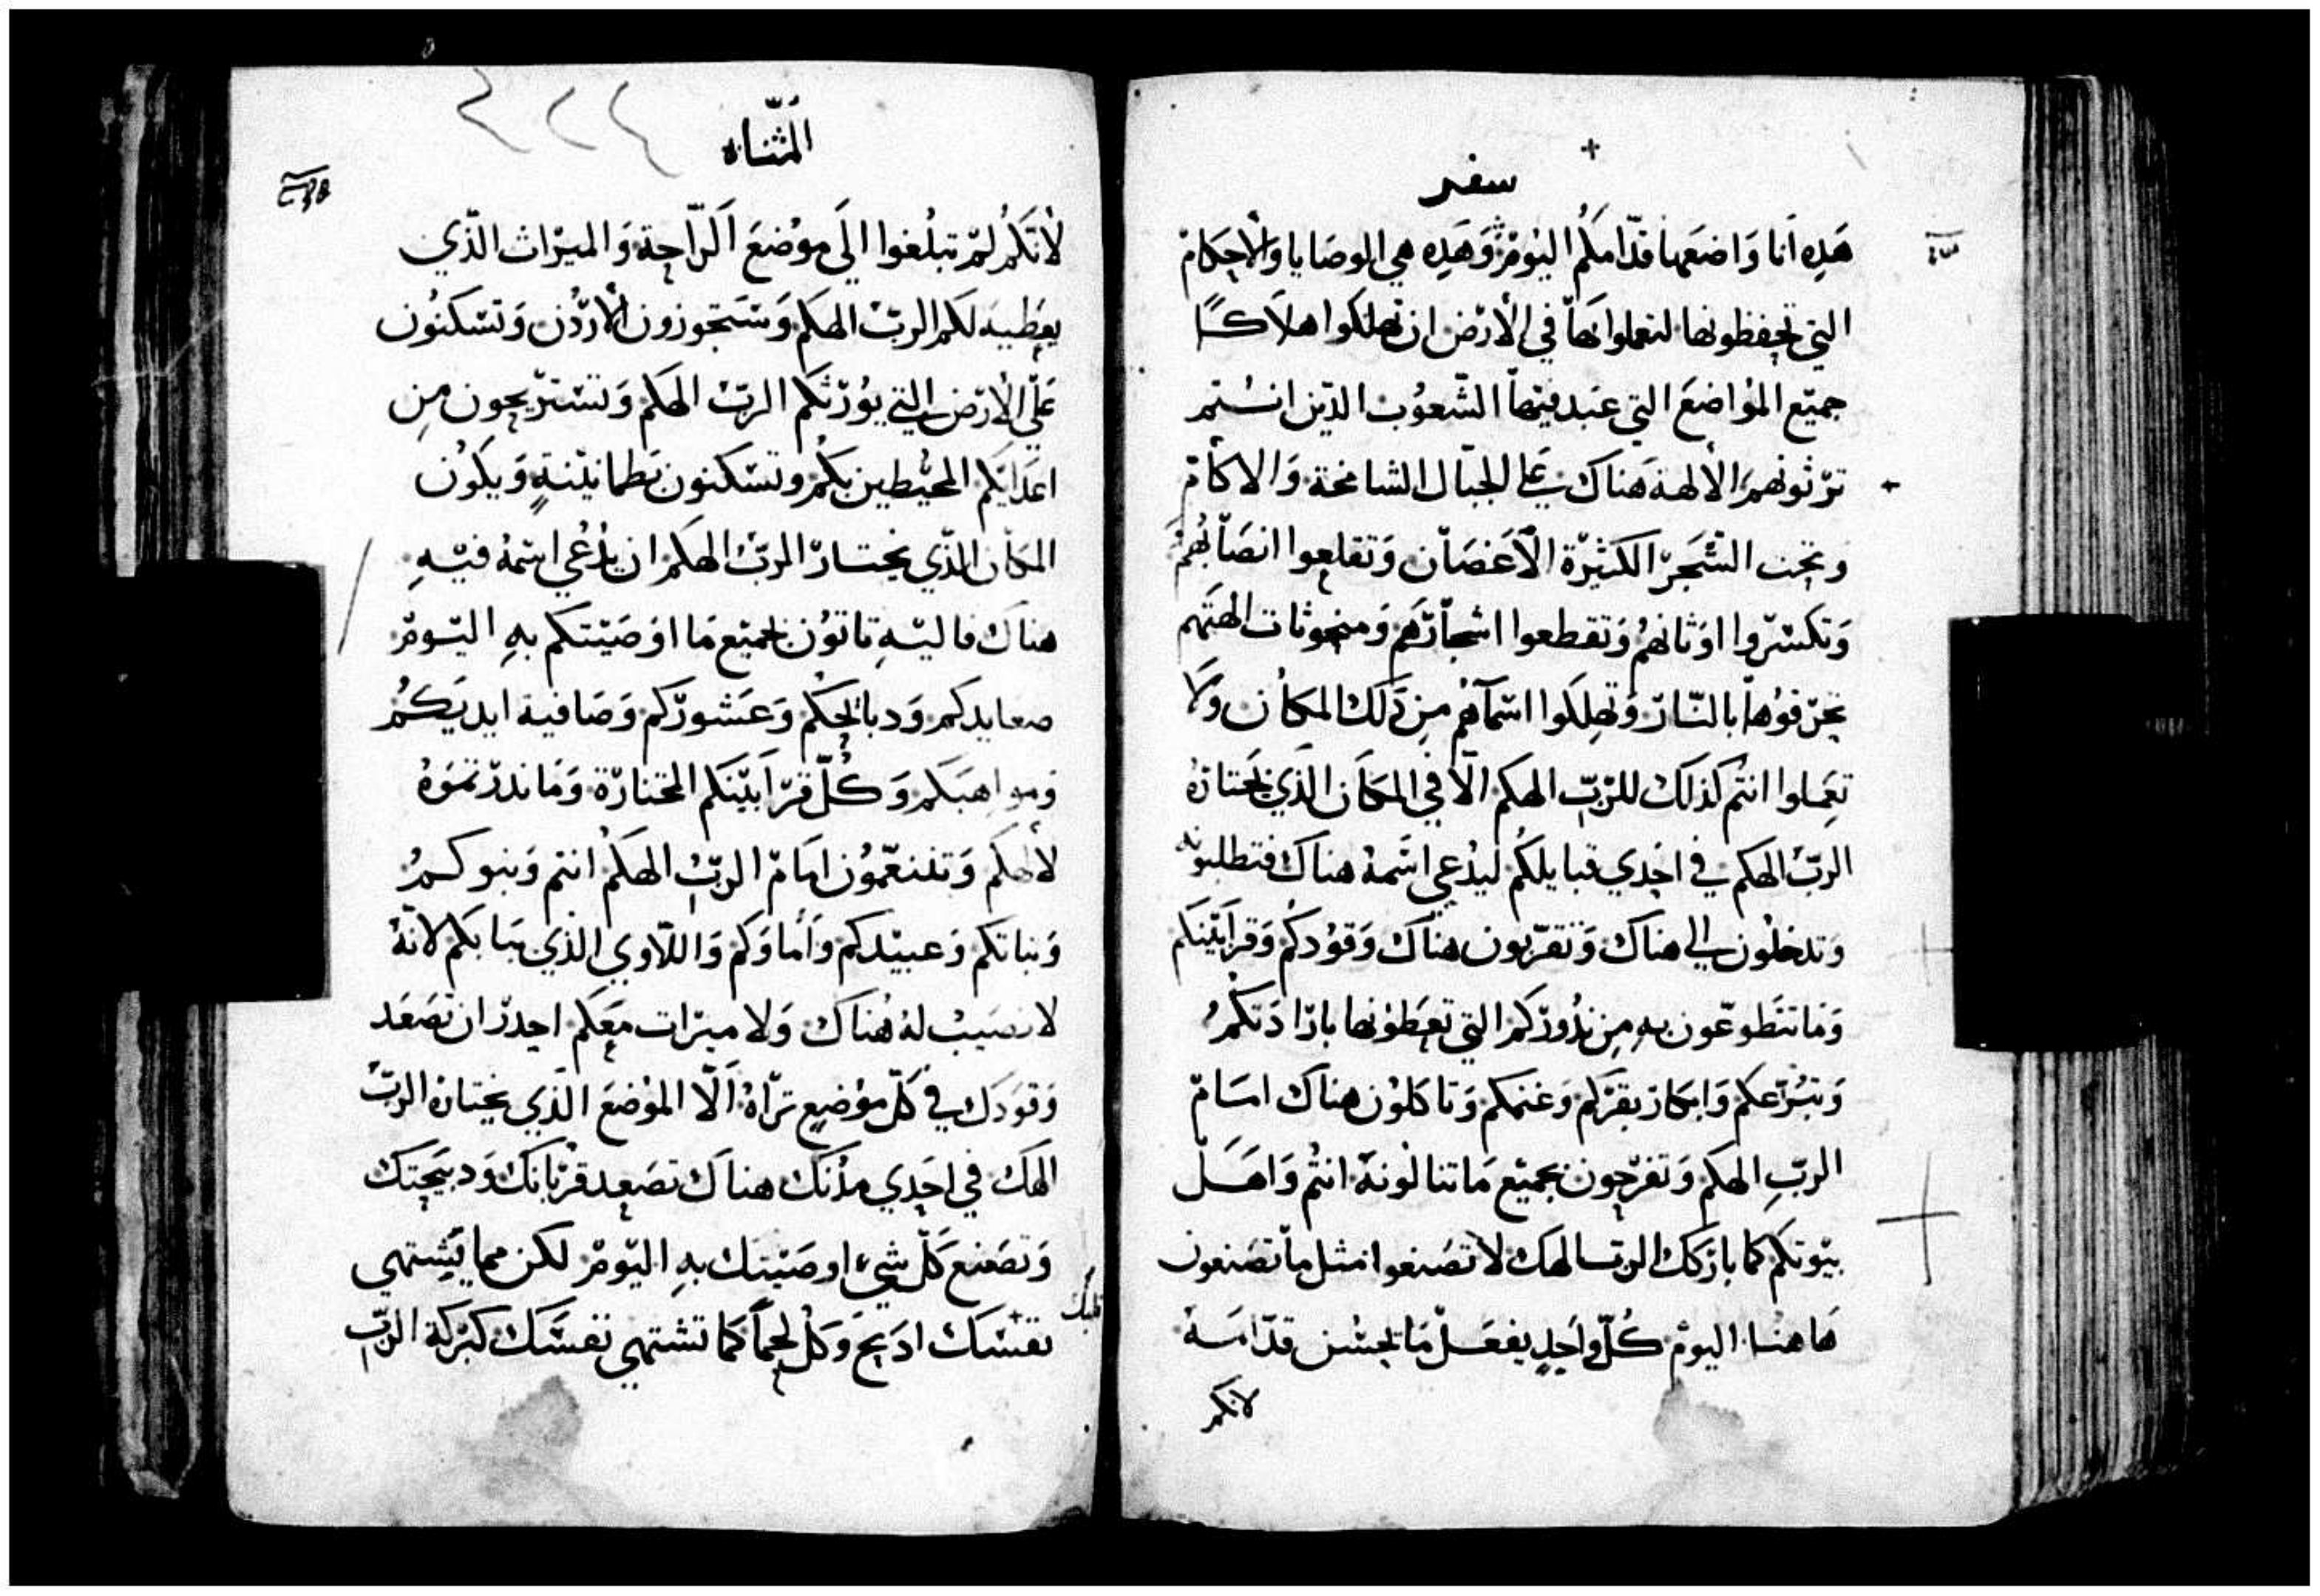 سفر
هَذِه أنا وَاضعَها قدّامكُم اليوْمَ وَهَذِه هي الوصَايا وَالأحكامْ
التي تحفظونها لتعملوا بَها في الأرْض ان تهلكوا هلاكًا
جميْع الموُاضعَ التي عبَد فيْها الشّعوُب الديْن انتم
ترْثونهم الألهة هَناك علي الجبَال الشامخة وَالاكأمْ
وتحت الشّجَرْ الكثيْرْة الأغصَان وَتقلعوا انصَابهُم
وَتكسّرْوا اوْثانهُم وَتقطعوا اشجارْهَم وَمنحوثات الهتَهم
تحرْقوُها بالنّارْ وَتهلكوا اسْمآهُم مِن ذَلك المكان وَلا
تعِملوا انتُم كذلك للرْبّ الهكم الّا في المكاَن الذَي يَختارْهُ
الربّ الهكم في احَدي قبايلكُم ليدُعي اسَّمهُ هناك فتطلبونه
وَتدخلُون الي هناك وَتقرّبون هنَاك وَقوُدكُم وَقرابَيْنكَم
وَماتتَطوعّون بهِ مِن ندُورْكم التي تعَطوْنها بارْادَتكُمُ
وَتبُرّعكم وَابكارْ بقرْكم وَغنمَكم وَتاكلوُن هناك امَامْ
الربّ الهكم وَتفرْحون بجميْع مَاتنالوُنهَ انتُم وَاهَل
بيْوتكَم كما بارْكك الرب الهك لاتصَنعوا مثل مأتصَنعون
هَاهنا اليومْ كُلّ وأحَدٍ يفعَلْ مَايحسْن قدّامَهْ
لانكم
الَمثّناه
لأنَكَمُ لمْ تبلُغوا الَي موُضعَ الَرّاحة وَالميرْاث الذّي
يعَطيهَ لكم الربّ الهكم وَستَجوزون الأرْدُن وَتسْكنوُن
عَلّي الأرْض التي يوُرْثكَم الربّ الهكم وَتسْترْيحون مِن
اعَدايَكم المحيُطين بكُم وتسْكنون بَطمانيْنةٍ وَيكوُن
المكاَن الذّي يختارْ الربّ الهكم ان يدُعي اسْمهُ فيْهِ
هناك فاليْهِ تاتوُن بجميْع مَا اوَصَيْتكم بهِ اليْومْ
صعايدكم وَدبايحكُم وَعَشورْكم وَصَافية ايديَكُم
وَمواهبَكم وَكُلّ قرْابَيْنَكم المختارْة وَمَاندرْتموَهُ
لألهكَم وَتتنعّموُن امَامْ الربُّ الهكَم انتم وَبنوكمُ
وَبناتكم وَعبيْدكم وَأماوَكم وَاللّاوي الذَي ببَابكم لانّهُ
لانصَيب لهُ هُناك وَلا ميرْات معَكم احِدرْ ان تصَعَد
وَقوَدك في كلّ موُضعٍ ترْاهُ الّا الموُضعَ الذَّي يختارْه الربّ
الهك في احَدي مدُنك هناك تصَعد قرْبانك وَدبيَحتك
وَتصَنع كَلّ شيْء اوصَيْتك بهِ اليْومْ لكن مما يَشِتهي
قلبك
نفسْك ادَبحَ وَكلْ لحماً كما تشتهي نفسَّك كبركة الربّ